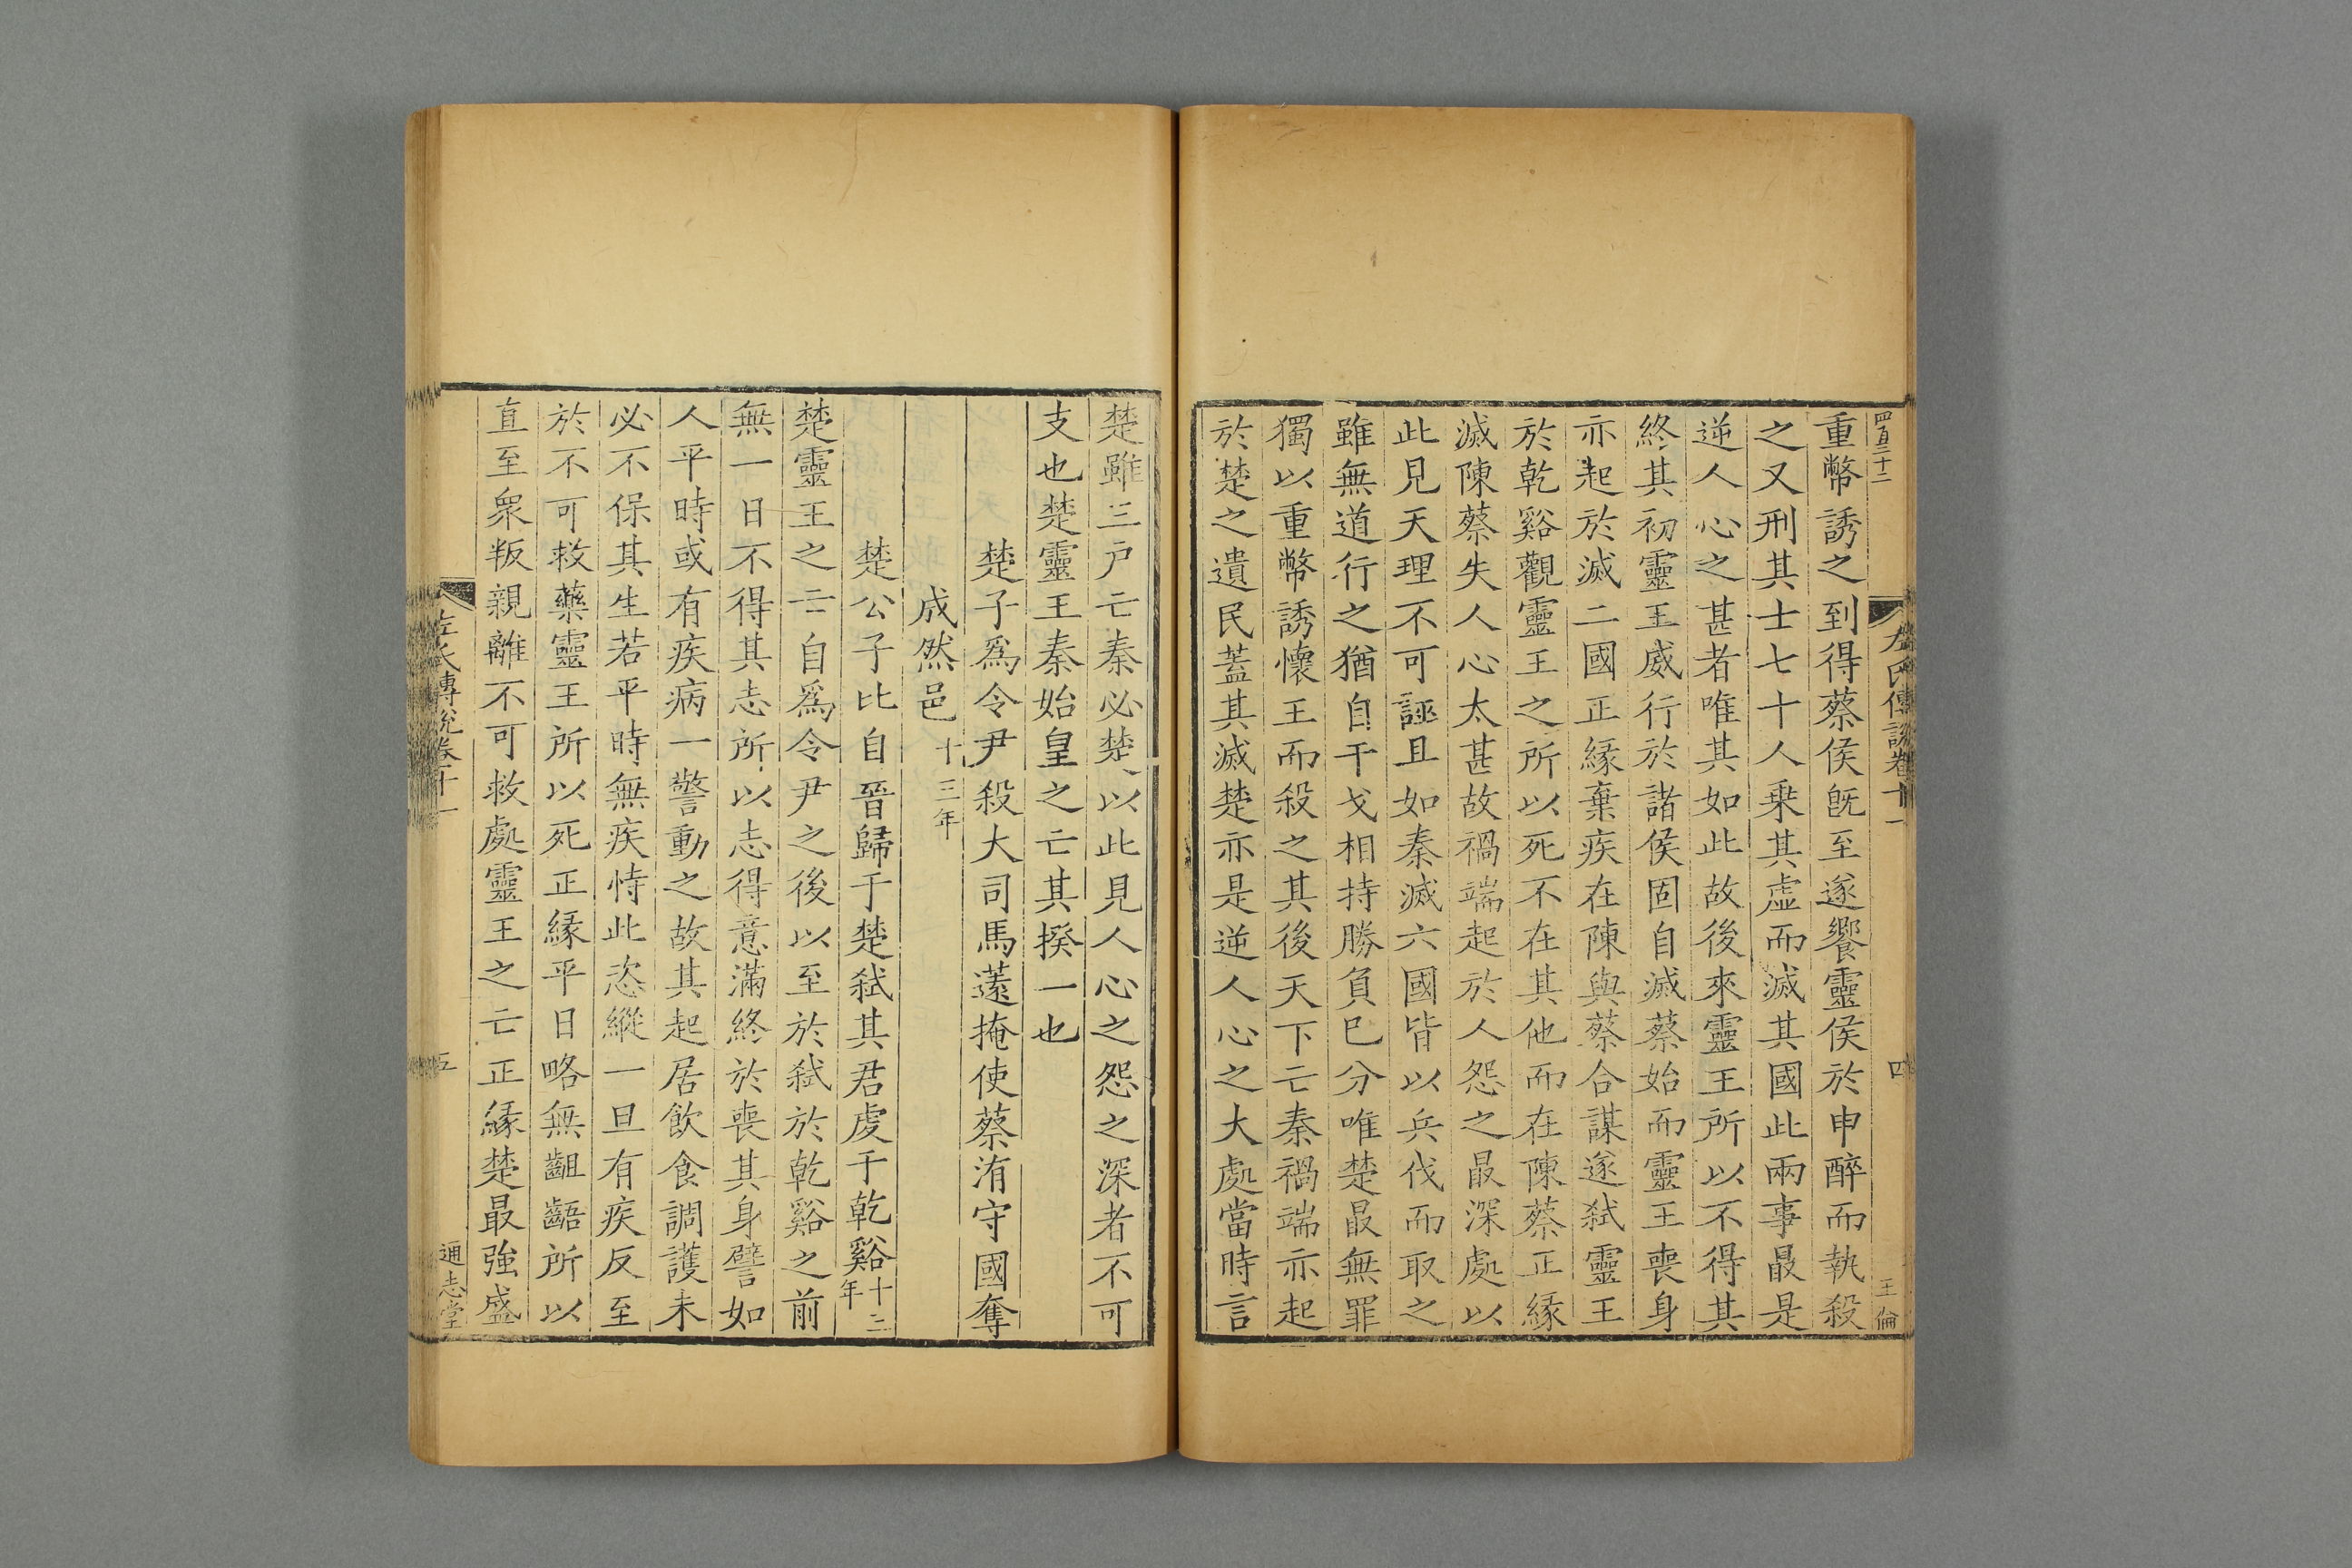 四百二十二
左氏傳說卷十一
四
王倫
重幣誘之到得蔡侯旣至遂饗靈侯於申醉而執殺
之又刑其士七十人乗其虛而滅其國此兩事最是
逆人心之甚者唯其如此故後來靈王所以不得其
終其初靈王威行於諸侯固自滅蔡始而靈王喪身
亦起於滅二國正緣棄疾在陳與蔡合謀遂弑靈王
於乾谿觀靈王之所以死不在其他而在陳蔡正緣
滅陳蔡失人心太甚故禍端起於人怨之最深處以
此見天理不可誣且如秦滅六國皆以兵伐而取之
雖無道行之猶自干戈相持勝負巳分唯楚最無罪
獨以重幣誘懷王而殺之其後天下亡秦禍端亦起
於楚之遺民蓋其滅楚亦是逆人心之大處當時言
楚雖三戸亡秦必楚以此見人心之怨之深者不可
支也楚靈王秦始皇之亡其揆一也
楚子爲令尹殺大司馬薳掩使蔡洧守國奪
成然邑十三年
楚公子比自晉歸于楚弑其君虔于乾谿十三年
楚靈王之亡自爲令尹之後以至於弑於乾谿之前
無一日不得其志所以志得意滿終於喪其身譬如
人平時或有疾病一警動之故其起居飲食調護未
必不保其生若平時無疾恃此恣縱一旦有疾反至
於不可救藥靈王所以死正緣平日略無齟齬所以
直至衆叛親離不可救處靈王之亡正緣楚最強盛
左氏傳說卷十一
五
通志堂